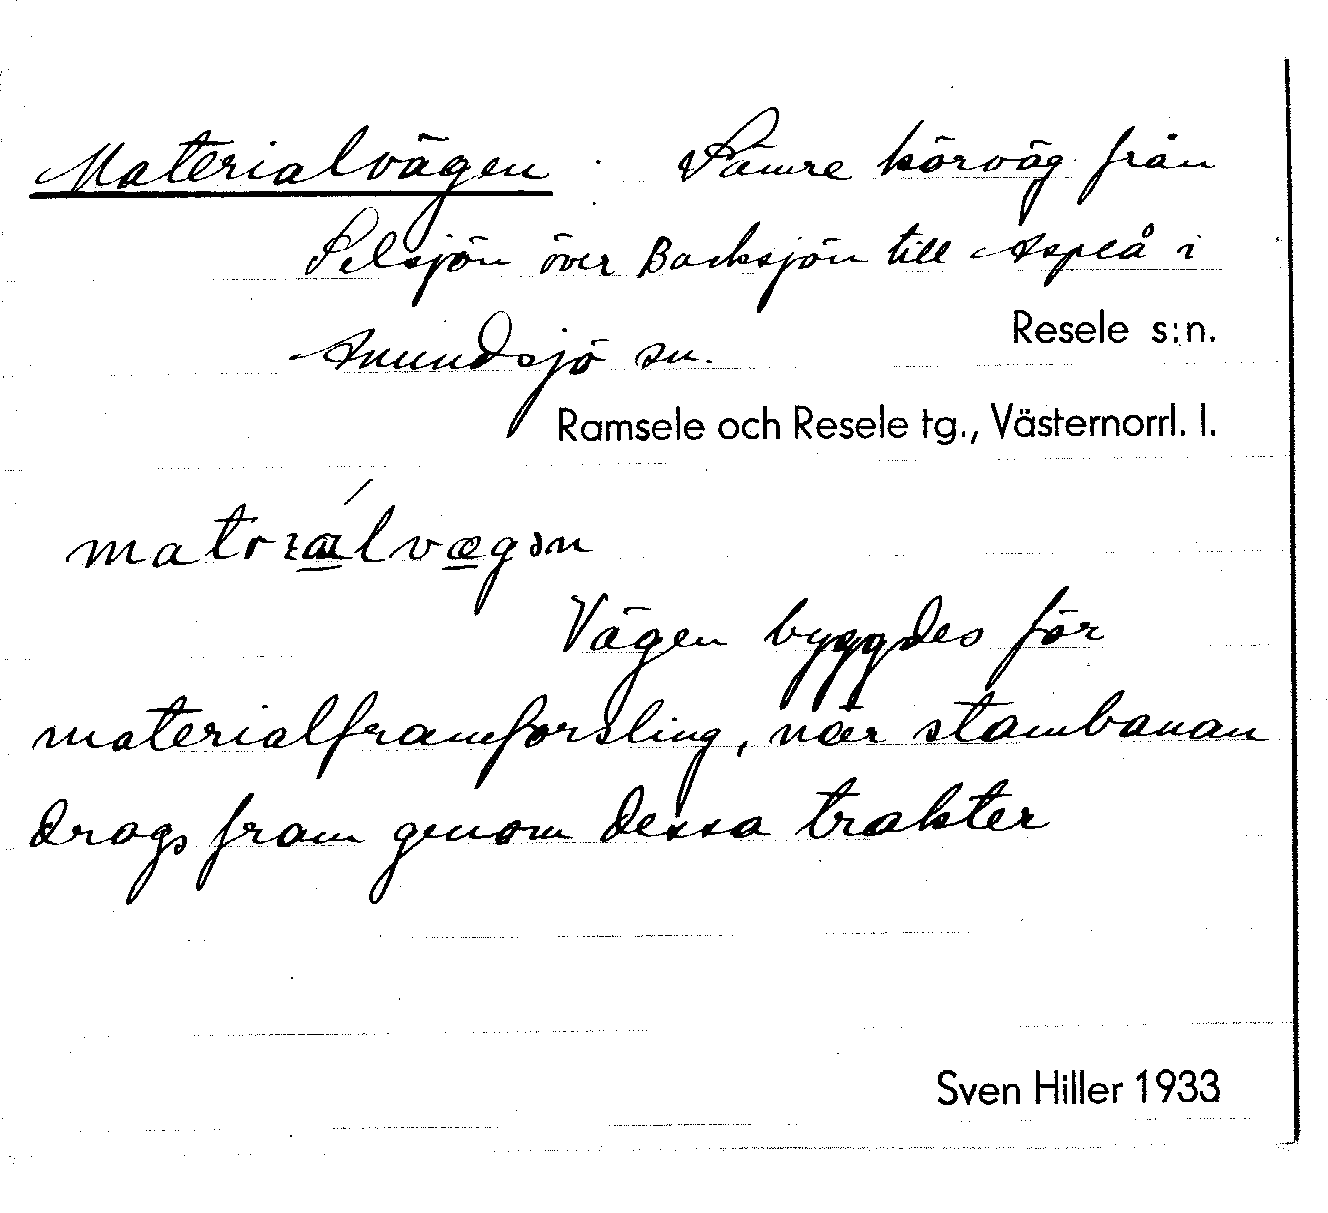 Materialvägen . Sämre körväg från
Selsjön över Backsjön till Aspeå i
Anundsjö sn.
Resele s:n.
Ramsele och Resele tg., Västernorrl. l.
Vägen byggdes för
materialframforsling, när stambanan
drogs fram genom dessa trakter
Sven Hiller 1933